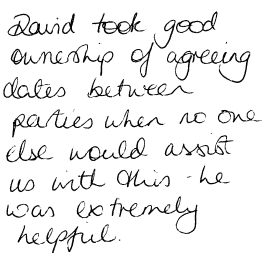 David took good
ownership of agreeing
dates between
parties when no one
else would assist
us with this - he
was extremely
helpful.